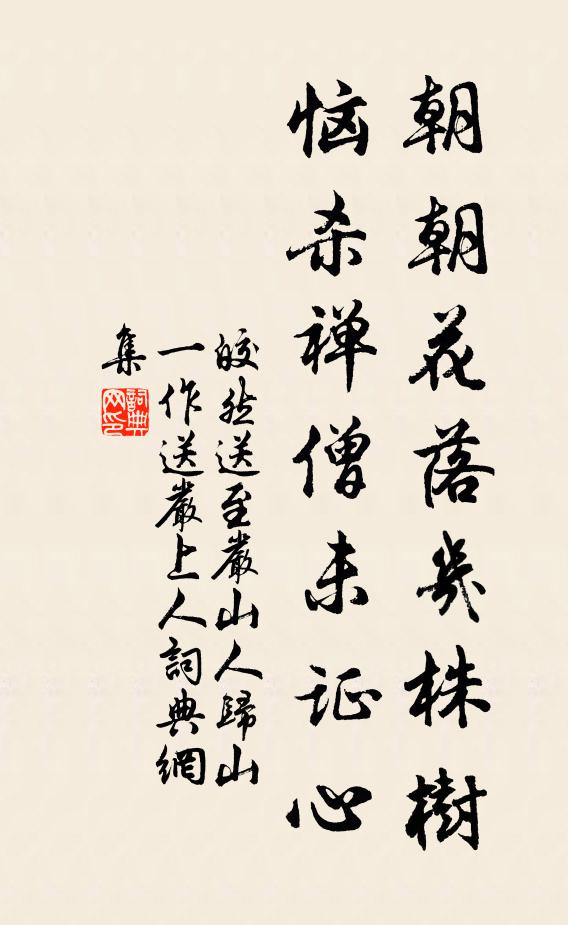 朝朝花落幾株樹
恼杀禅僧未证心
皎然送至嚴山人歸山
一作送嚴上人詞典網
集
詞典網印